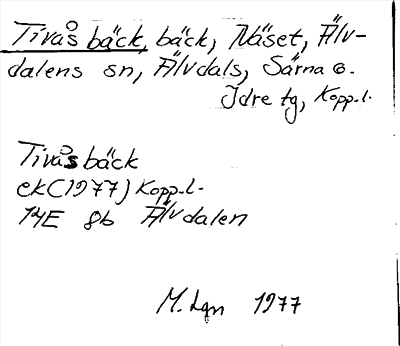 Tivåsbäck, bäck, Näset, Älv-
dalens sn, Älvdals, Särna o.
Idre tg, Kopp.l.
Tivåsbäck
ek (1977) Kopp.l.
14E 8b Älvdalen
M. Lgn 1977